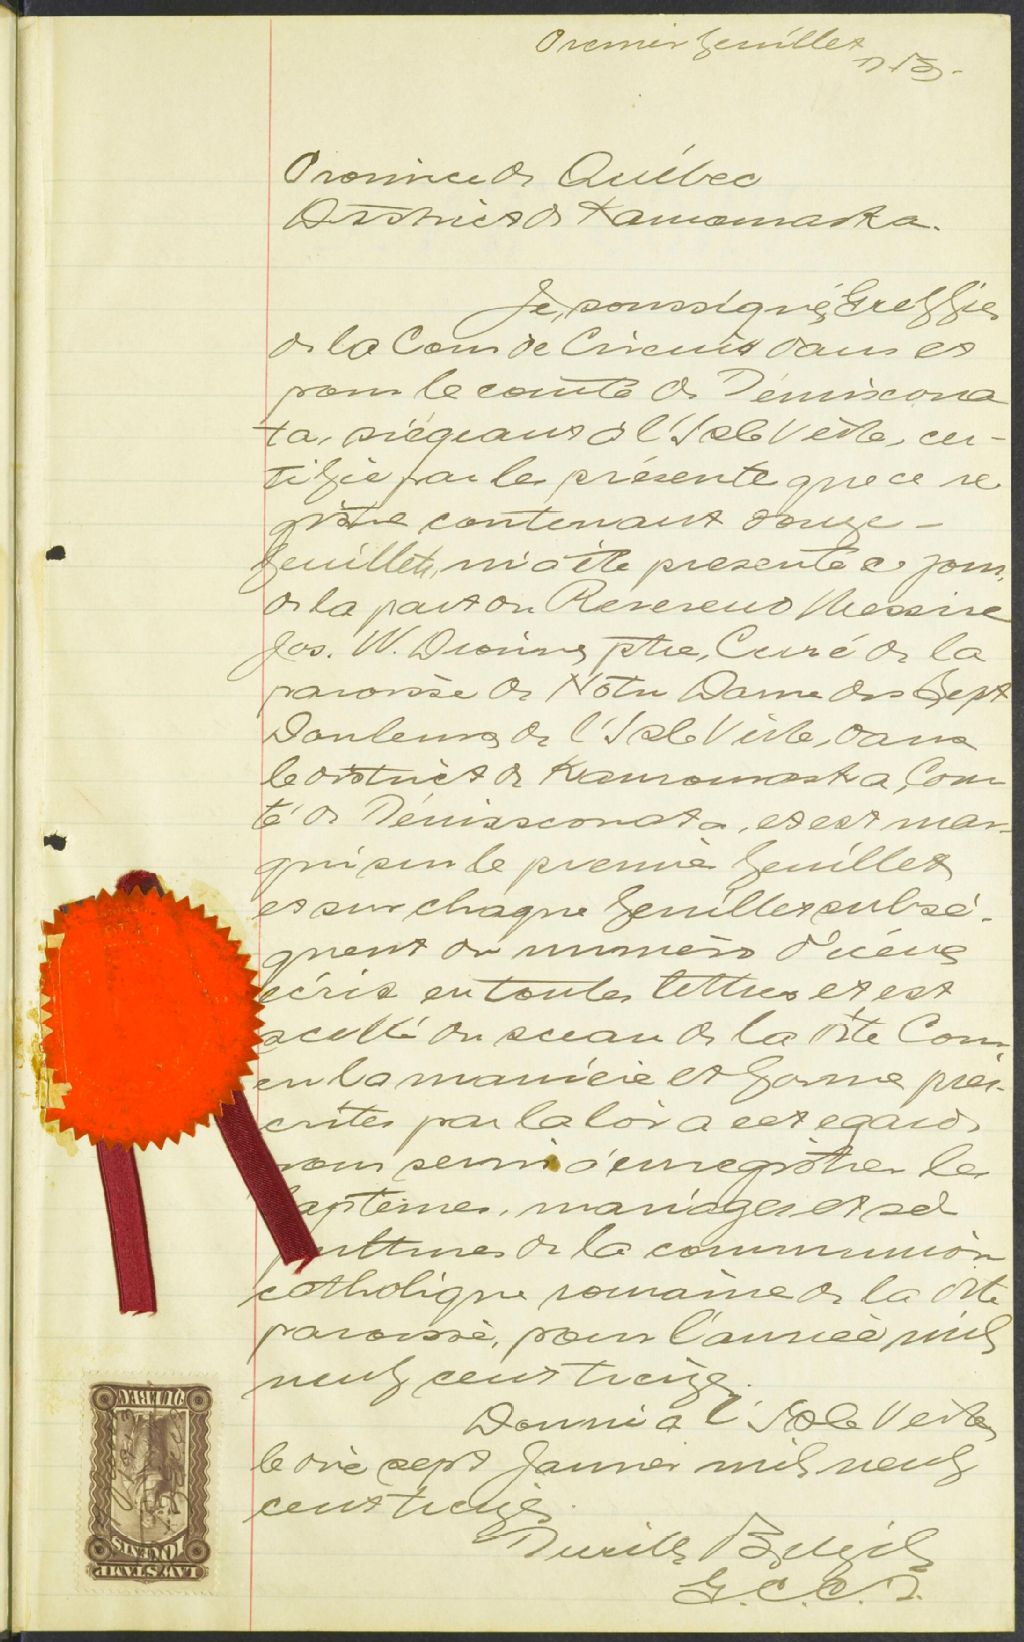 Premier feuillet
Province de Québec
District de Kamouraska.
Je, soussigné, Greffier
de la Cour de Circuit dans et
pour le comté de Témiscoua
ta, siégeant à l'Isle Verte, cer-
tifie par les présente que ce re
gistre contenant douze -
feuillets, m'a été presenté ce jour,
de la part du Reverend Messire
Jos. W. Dionne, ptre, Curé de la
paroisse de Notre Dame des Sept
Douleurs de l'Isle Verte, dans
le district de Kamouraska, Com
té de Témisscouata, et est mar-
qué sur le premier feuillet
et sur chaque feuillet subsé-
quent du numéro d'iceux
écrit en toutes lettres et est
scellé du sceau de la dite Cour,
en la manière et forme pres-
crites par la loi a cet egard,
pour servir à enregistrer les
baptemes, mariages et sé
pultures de la communion
catholique romaine de la dite
paroisse, pour l'année mil
neuf cent treize.
Donné à l'Isle Verte
le dix sept Janvier mil neuf
cent treize.
G. C. C. T.
QUEBEC
10 CENTS
LAW STAMP